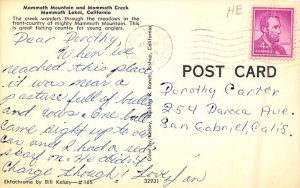 Mammoth Mountain and Mammoth Creek
Mammoth Lakes, California
The creek wanders through the meadows in the
front country of mighty Mammoth Mountain. This
is great fishing country for young anglers.
Dear Dorothy,
When we
reached this place
it was near a
pasture full of bulls
and cows. One bull
came right up to our
car and I had a red
on. He didn't
charge though! Love, Jan
Ektachrome by Bill Kelsey—#165
32931
HE
4¢
POST CARD
Dorothy Carter
254 Ave
San Gabriel, Calif.